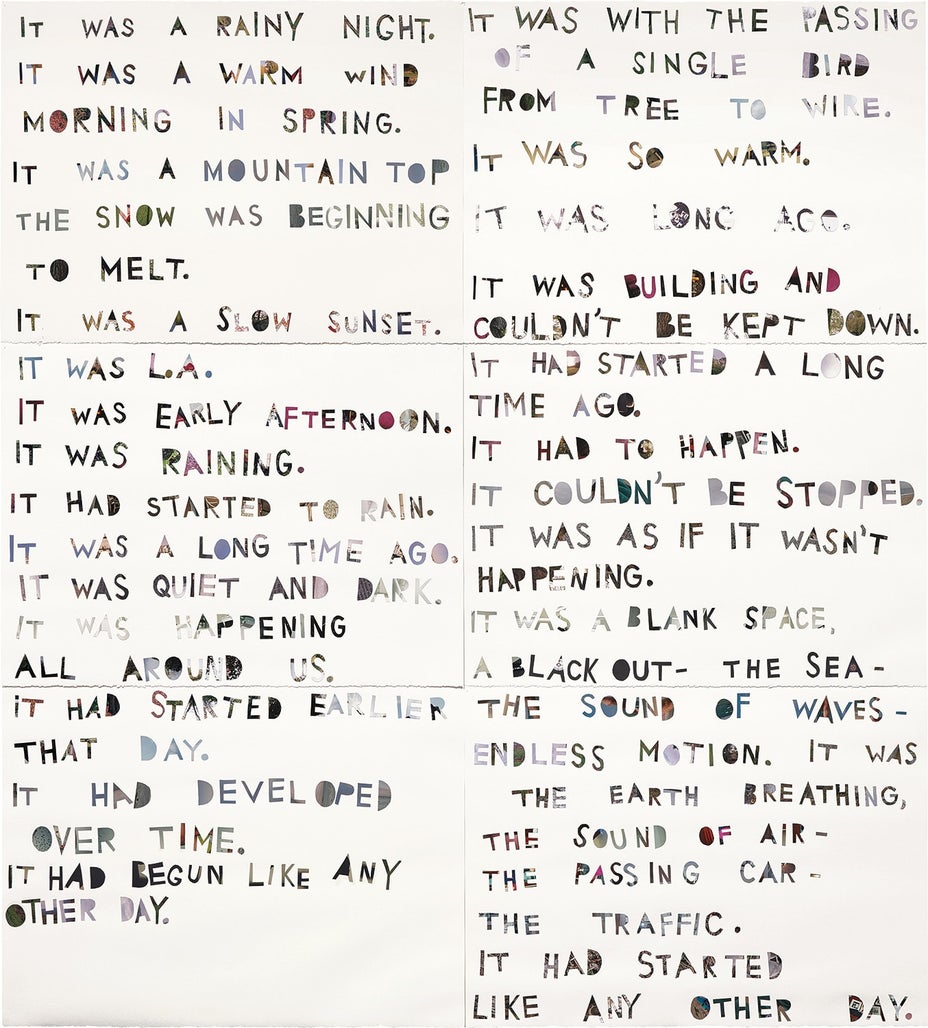 IT WAS A RAINY NIGHT.
IT WAS A WARM WIND
MORNING IN SPRING.
IT WAS A MOUNTAIN TOP
THE SNOW WAS BEGINNING
TO MELT.
IT WAS A SLOW SUNSET.
IT WAS L.A.
IT WAS EARLY AFTERNOON.
IT WAS RAINING.
IT HAD STARTED TO RAIN.
IT WAS A LONG TIME AGO.
IT WAS QUIET AND DARK.
IT WAS HAPPENING
ALL AROUND US.
IT HAD STARTED EARLIER
THAT DAY.
IT HAD DEVELOPED
OVER TIME.
IT HAD BEGUN LIKE ANY
OTHER DAY.
IT WAS WITH THE PASSING
OF A SINGLE BIRD
FROM TREE TO WIRE.
IT WAS SO WARM.
IT WAS LONG AGO.
IT WAS BUILDING AND
COULDN'T BE KEPT DOWN.
IT HAD STARTED A LONG
TIME AGO.
IT HAD TO HAPPEN.
IT COULDN'T BE STOPPED.
IT WAS AS IF IT WASN'T
HAPPENING.
IT WAS A BLANK SPACE,
A BLACK OUT- THE SEA-
THE SOUND OF WAVES-
ENDLESS MOTION. IT WAS
THE EARTH BREATHING,
THE SOUND OF AIR-
THE PASSING CAR-
THE TRAFFIC.
IT HAD STARTED
LIKE ANY OTHER DAY.